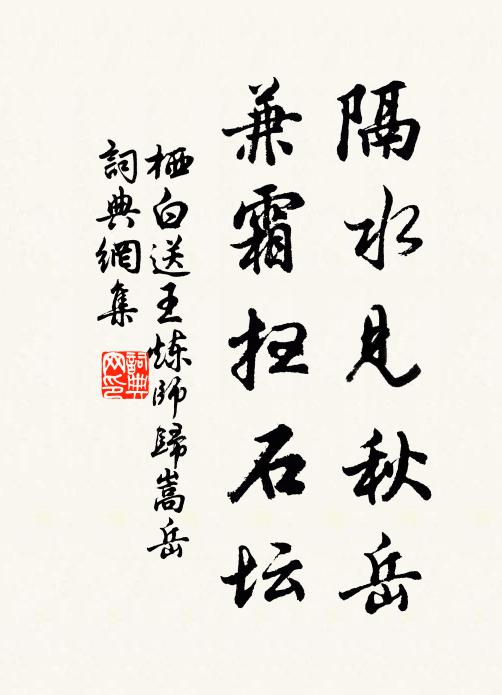 隔水見秋岳
兼霜扫石坛
栖白送王炼師歸嵩岳
詞典網集
詞典网印